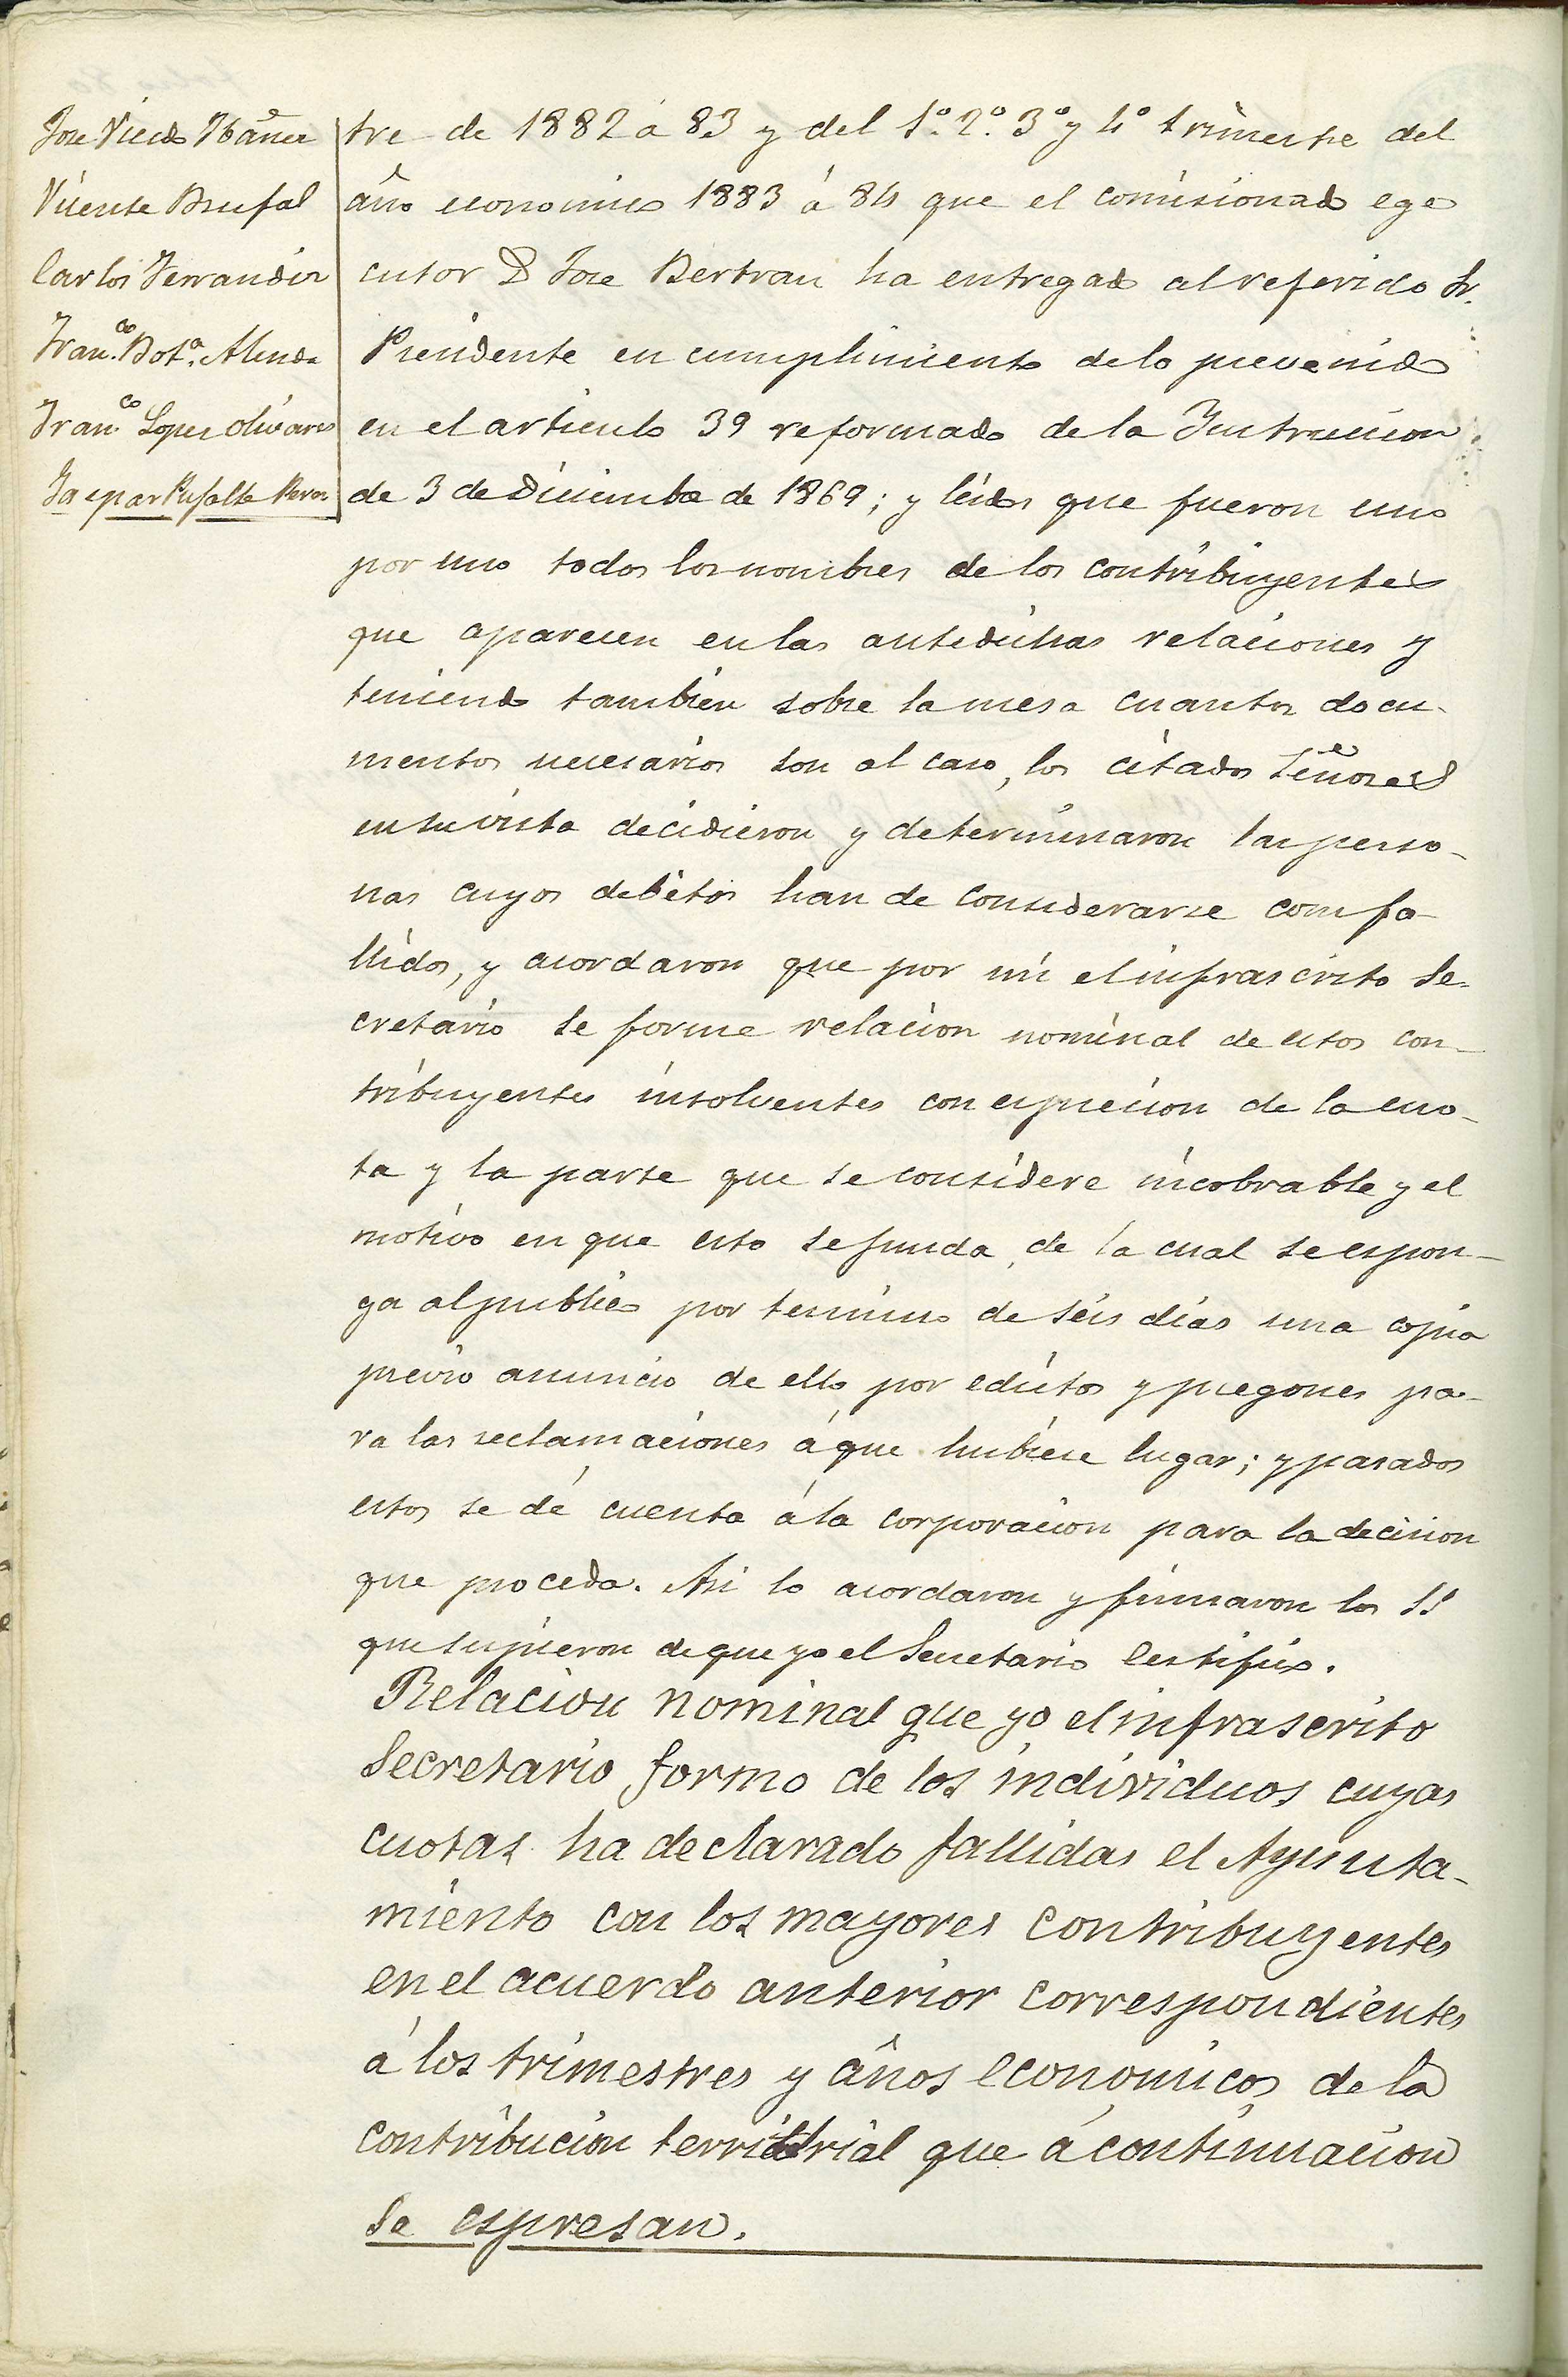 Jose Vicedo Ibañez
Vicente Brufal
Carlos Ferrandiz
Fran.co Bot.a Alenda
Fran.co Lopez Olivares
Gaspar Pujalte
tre de 1882 á 83 y del 1º. 2º. 3º y 4º trimestre del
año economico 1883 á 84 que el comisionado ege
cutor D Jose Bertran ha entregado al referido Sr.
Presidente en cumplimiento de lo prevenido
en el articulo 39 reformado de la Instruccion
de 3 de Diciembre de 1869; y leidos que fueron uno
por uno todos los nombres de los contribuyentes
que aparecen en las antedichas relaciones y
teniendo tambien sobre la mesa cuantos docu-
mentos necesarios son al caso, los citados Señores
en su vista decidieron y determinaron las perso-
nas cuyos debitos han de considerarse com fa-
llidos, y acordaron que por mi el infrascrito Se-
cretario se forme relacion nominal de estos con-
tribuyentes insolventes con espresion de la cuo-
ta y la parte que se considere incobrable y el
motivo en que esto se funda, de la cual se espon-
ga al publico por termino de seis dias una copia
previo anuncio de ello por edictos y pregones pa-
ra las reclamaciones á que hubiese lugar; y pasados
estos se dé cuenta á la corporacion para la decision
que proceda. Asi lo acordaron y firmaron los SS
que supieron de que yo el Secretario certifico.
Relacion nominal que yo el infrascrito
Secretario formo de los individuos cuyas
cuotas ha declarado fallidas el Ayunta-
miento con los mayores contribuyentes
en el acuerdo anterior correspondientes
á los trimestres y años economicos de la
contribucion territorial que á continuacion
se espresan.